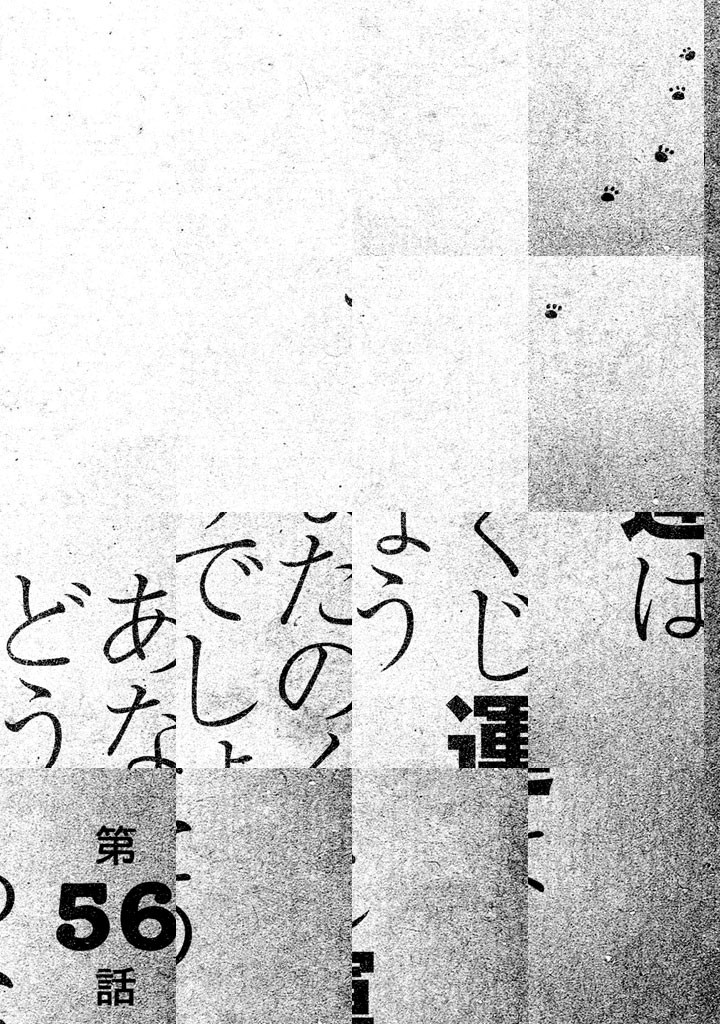 あなたのくじ運は
どうでしょう
第
56
話